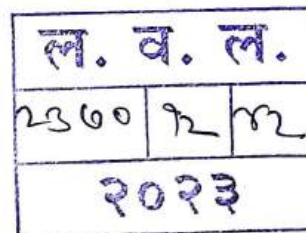 ल. व. ल.
२३७० १२ ४२
२०२३